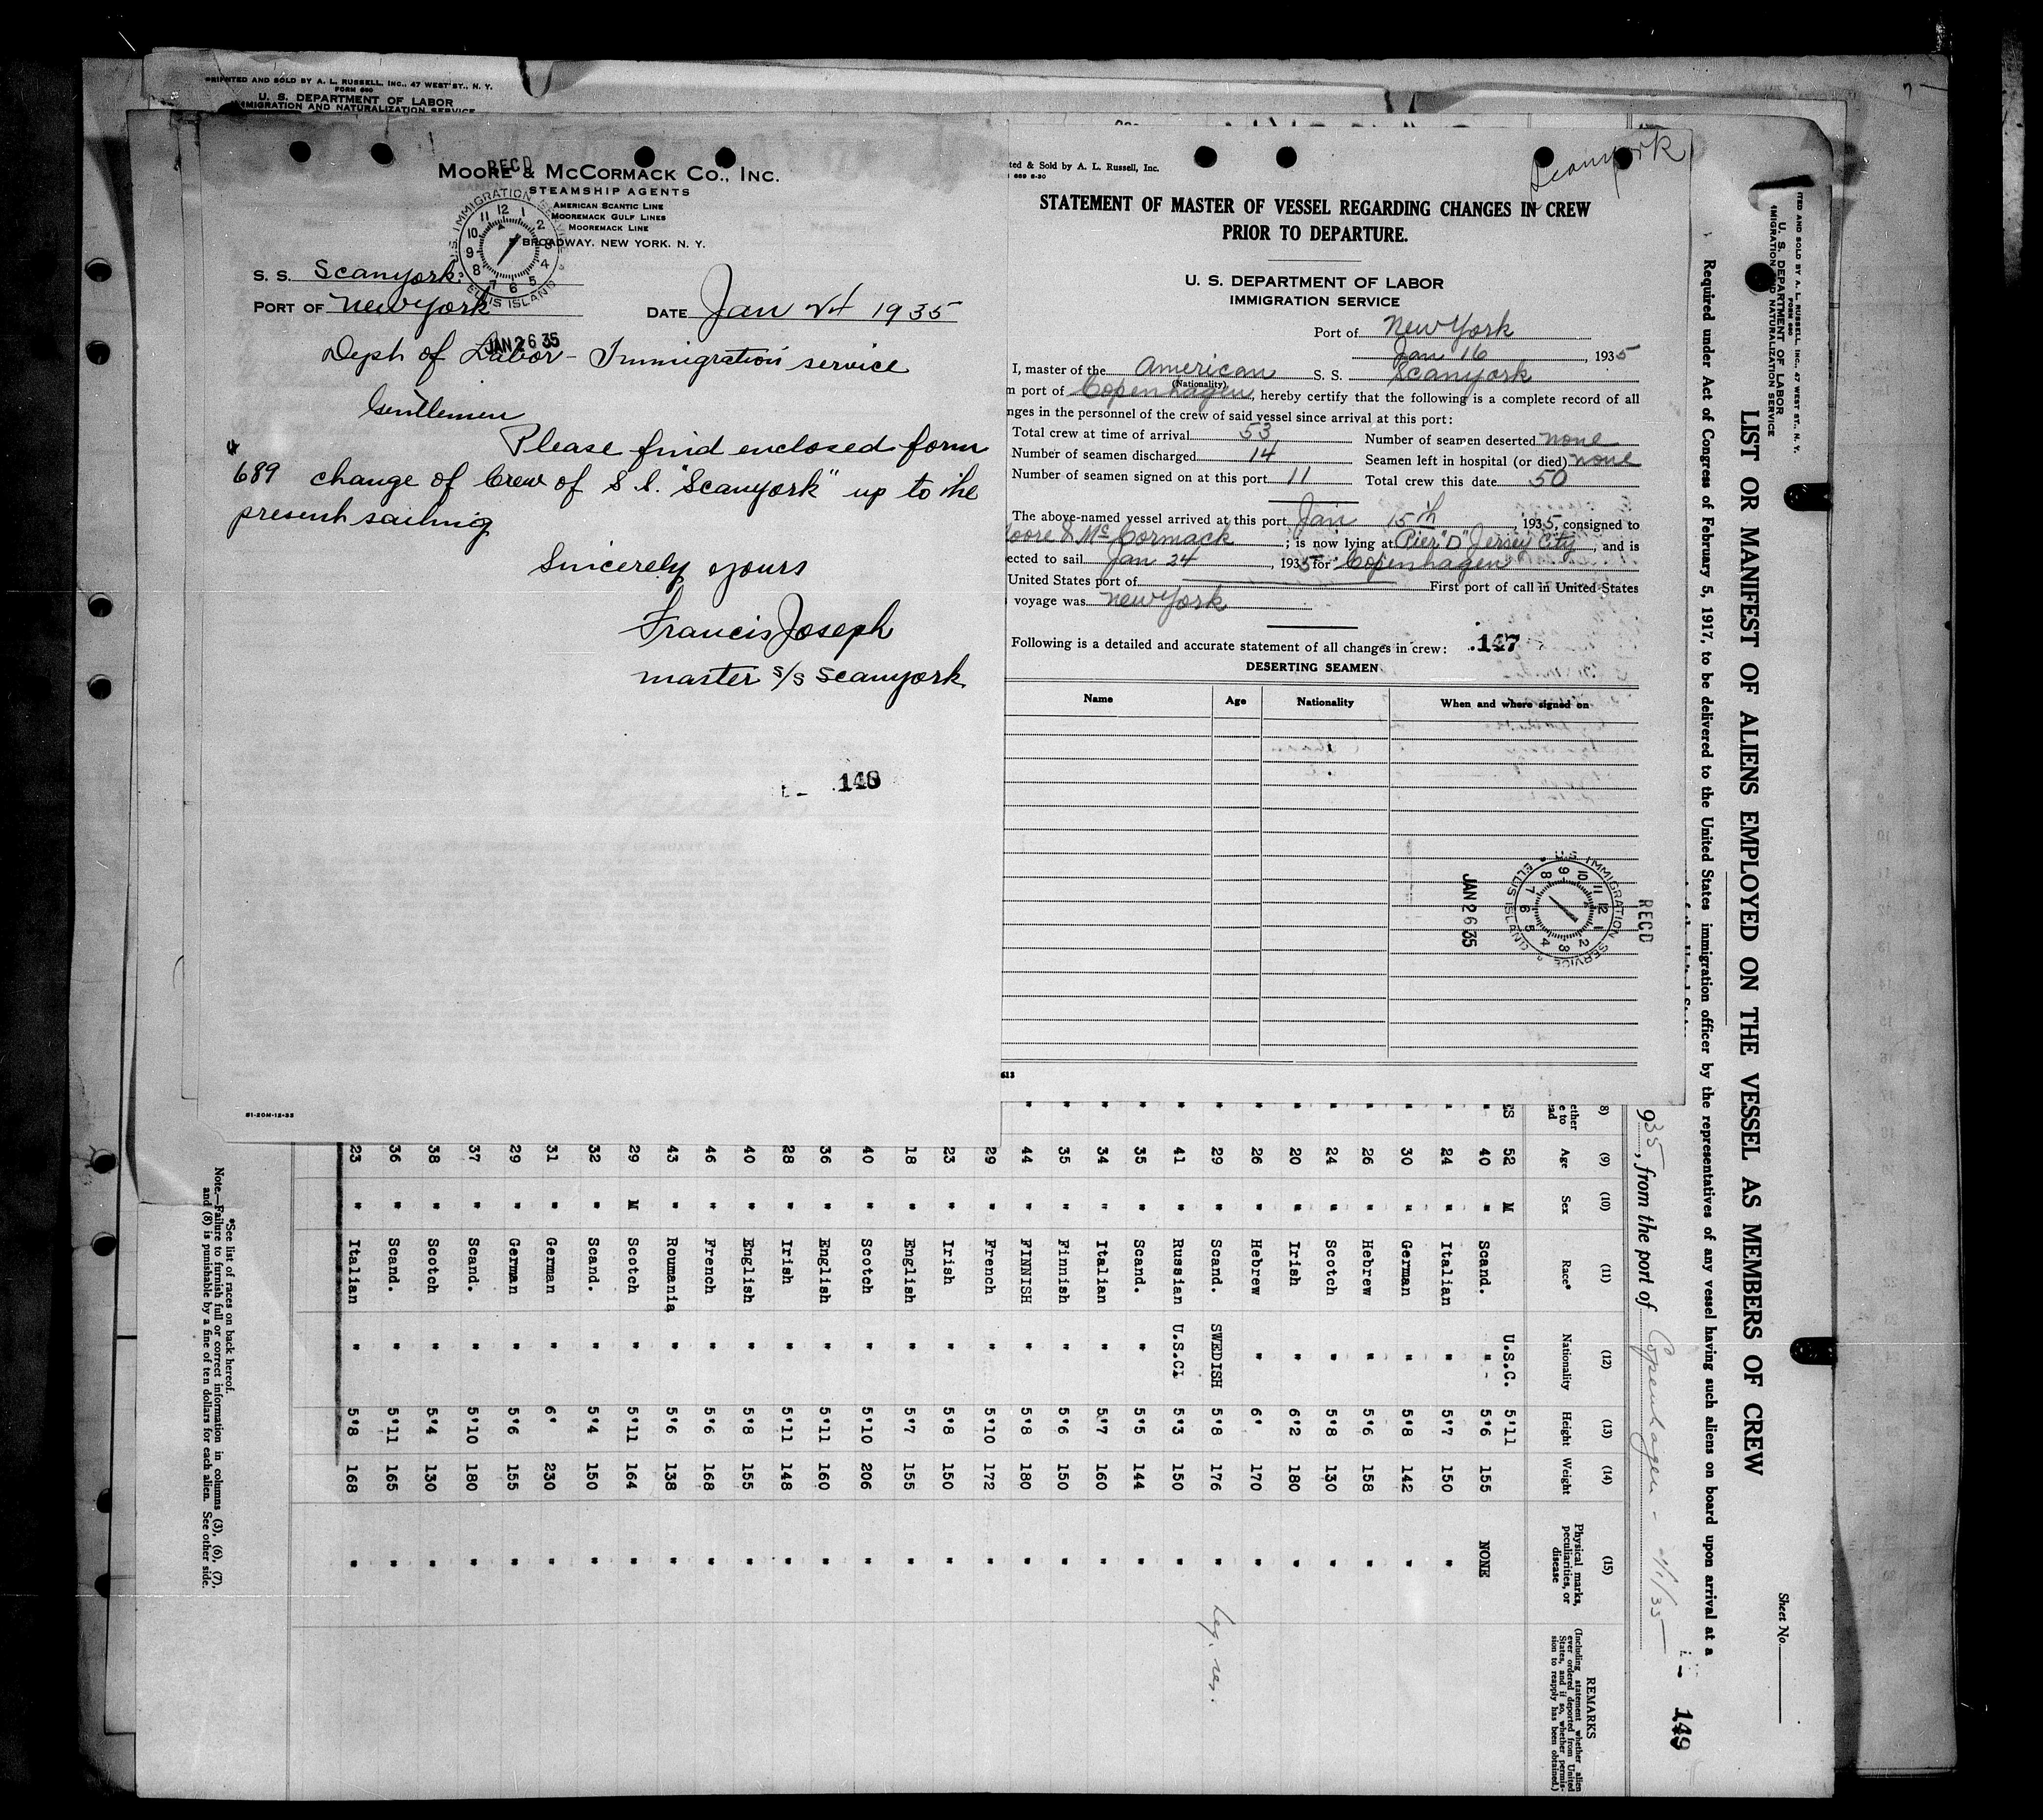 PRINTED AND SOLD BY A. L. RUSSELL, INC., 47 WEST ST., N. Y.
FORM 680
U. S. DEPARTMENT OF LABOR
IMMIGRATION AND NATURALIZATION SERVICE
RECD
MOORE & MCCORMACK CO., INC.
STEAMSHIP AGENTS
AMERICAN SCANTIC LINE
MOOREMACK GULF LINES
MOOREMACK LINE
BROADWAY, NEW YORK, N. Y.
U.S. IMMIGRATION SERVICE
ELLIS ISLAND
S. S. Scanyork
PORT OF New York DATE Jan 24 1935
JAN 26 35
Dept of Labor - Immigration service
Gentlemen
Please find enclosed form
689 change of Crew of S.S. "Scanyork" up to the
present sailing
Sincerely yours
Francis Joseph
master s/s Scanyork
148
61-20M-12-33
Scanyork
ted & Sold by A. L. Russell, Inc.
689 6-30
STATEMENT OF MASTER OF VESSEL REGARDING CHANGES IN CREW
PRIOR TO DEPARTURE.
U. S. DEPARTMENT OF LABOR
IMMIGRATION SERVICE
Port of New York
Jan 16, 1935
I, master of the American S. S. Scanyork
(Nationality)
m port of Copenhagen, hereby certify that the following is a complete record of all
nges in the personnel of the crew of said vessel since arrival at this port:
Total crew at time of arrival 53 Number of seamen deserted none
Number of seamen discharged 14 Seamen left in hospital (or died) none
Number of seamen signed on at this port 11 Total crew this date 50
The above-named vessel arrived at this port Jan 15th, 1935, consigned to
Moore & McCormack; is now lying at Pier "D" Jersey City, and is
ected to sail Jan 24, 1935 for Copenhagen
United States port of First port of call in United States
voyage was New York
Following is a detailed and accurate statement of all changes in crew: 147
DESERTING SEAMEN
Name Age Nationality When and where signed on
RECD
U.S. IMMIGRATION SERVICE
ELLIS ISLAND
JAN 26 35
613
TED AND SOLD BY A. L. RUSSELL, INC., 47 WEST ST., N. Y.
FORM 680
U. S. DEPARTMENT OF LABOR
IMMIGRATION AND NATURALIZATION SERVICE
Sheet No.
LIST OR MANIFEST OF ALIENS EMPLOYED ON THE VESSEL AS MEMBERS OF CREW
Required under Act of Congress of February 5, 1917, to be delivered to the United States immigration officer by the representatives of any vessel having such aliens on board upon arrival at a
149
935, from the port of Copenhagen - 1/1/35
8) (9) (10) (11) (12) (13) (14) (15)
ether e to ead Age Sex Race* Nationality Height Weight Physical marks, peculiarities, or disease
REMARKS
(Including statement whether alien ever ordered deported from United States, and if so, whether permission to reapply has been obtained.)
ES 52 M U.S.C. 5'11
" 40 " Scand. " 5'6 155 NONE
" 24 " Italian " 5'7 150 "
" 30 " German " 5'8 142 "
" 26 " Hebrew " 5'6 158 "
" 24 " Scotch " 5'8 130 "
" 20 " Irish " 6'2 180 "
" 26 " Hebrew " 6' 170 "
" 29 " Scand. SWEDISH 5'8 176 " Leg. res.
" 41 " Russian U.S.CI 5'3 150 "
" 35 " Scand. " 5'5 144 "
" 34 " Italian " 5'7 160 "
" 35 " Finnish " 5'6 150 "
" 44 " FINNISH " 5'8 180 "
29 " French " 5'10 172 "
23 " Irish " 5'8 150 "
18 " English " 5'7 155 "
40 " Scotch " 5'10 206 "
36 " English " 5'11 160 "
28 " Irish " 5'11 148 "
40 " English " 5'8 155 "
46 " French " 5'6 168 "
43 " Roumania " 5'6 138 "
29 M Scotch " 5'11 164 "
32 " Scand. " 5'4 150 "
31 " German " 6' 230 "
29 " German " 5'6 155 "
37 " Scand. " 5'10 180 "
38 " Scotch " 5'4 130 "
36 " Scand. " 5'11 165 "
23 " Italian " 5'8 168 "
*See list of races on back hereof.
Note.—Failure to furnish full or correct information in columns (3), (6), (7),
and (8) is punishable by a fine of ten dollars for each alien. See other side.